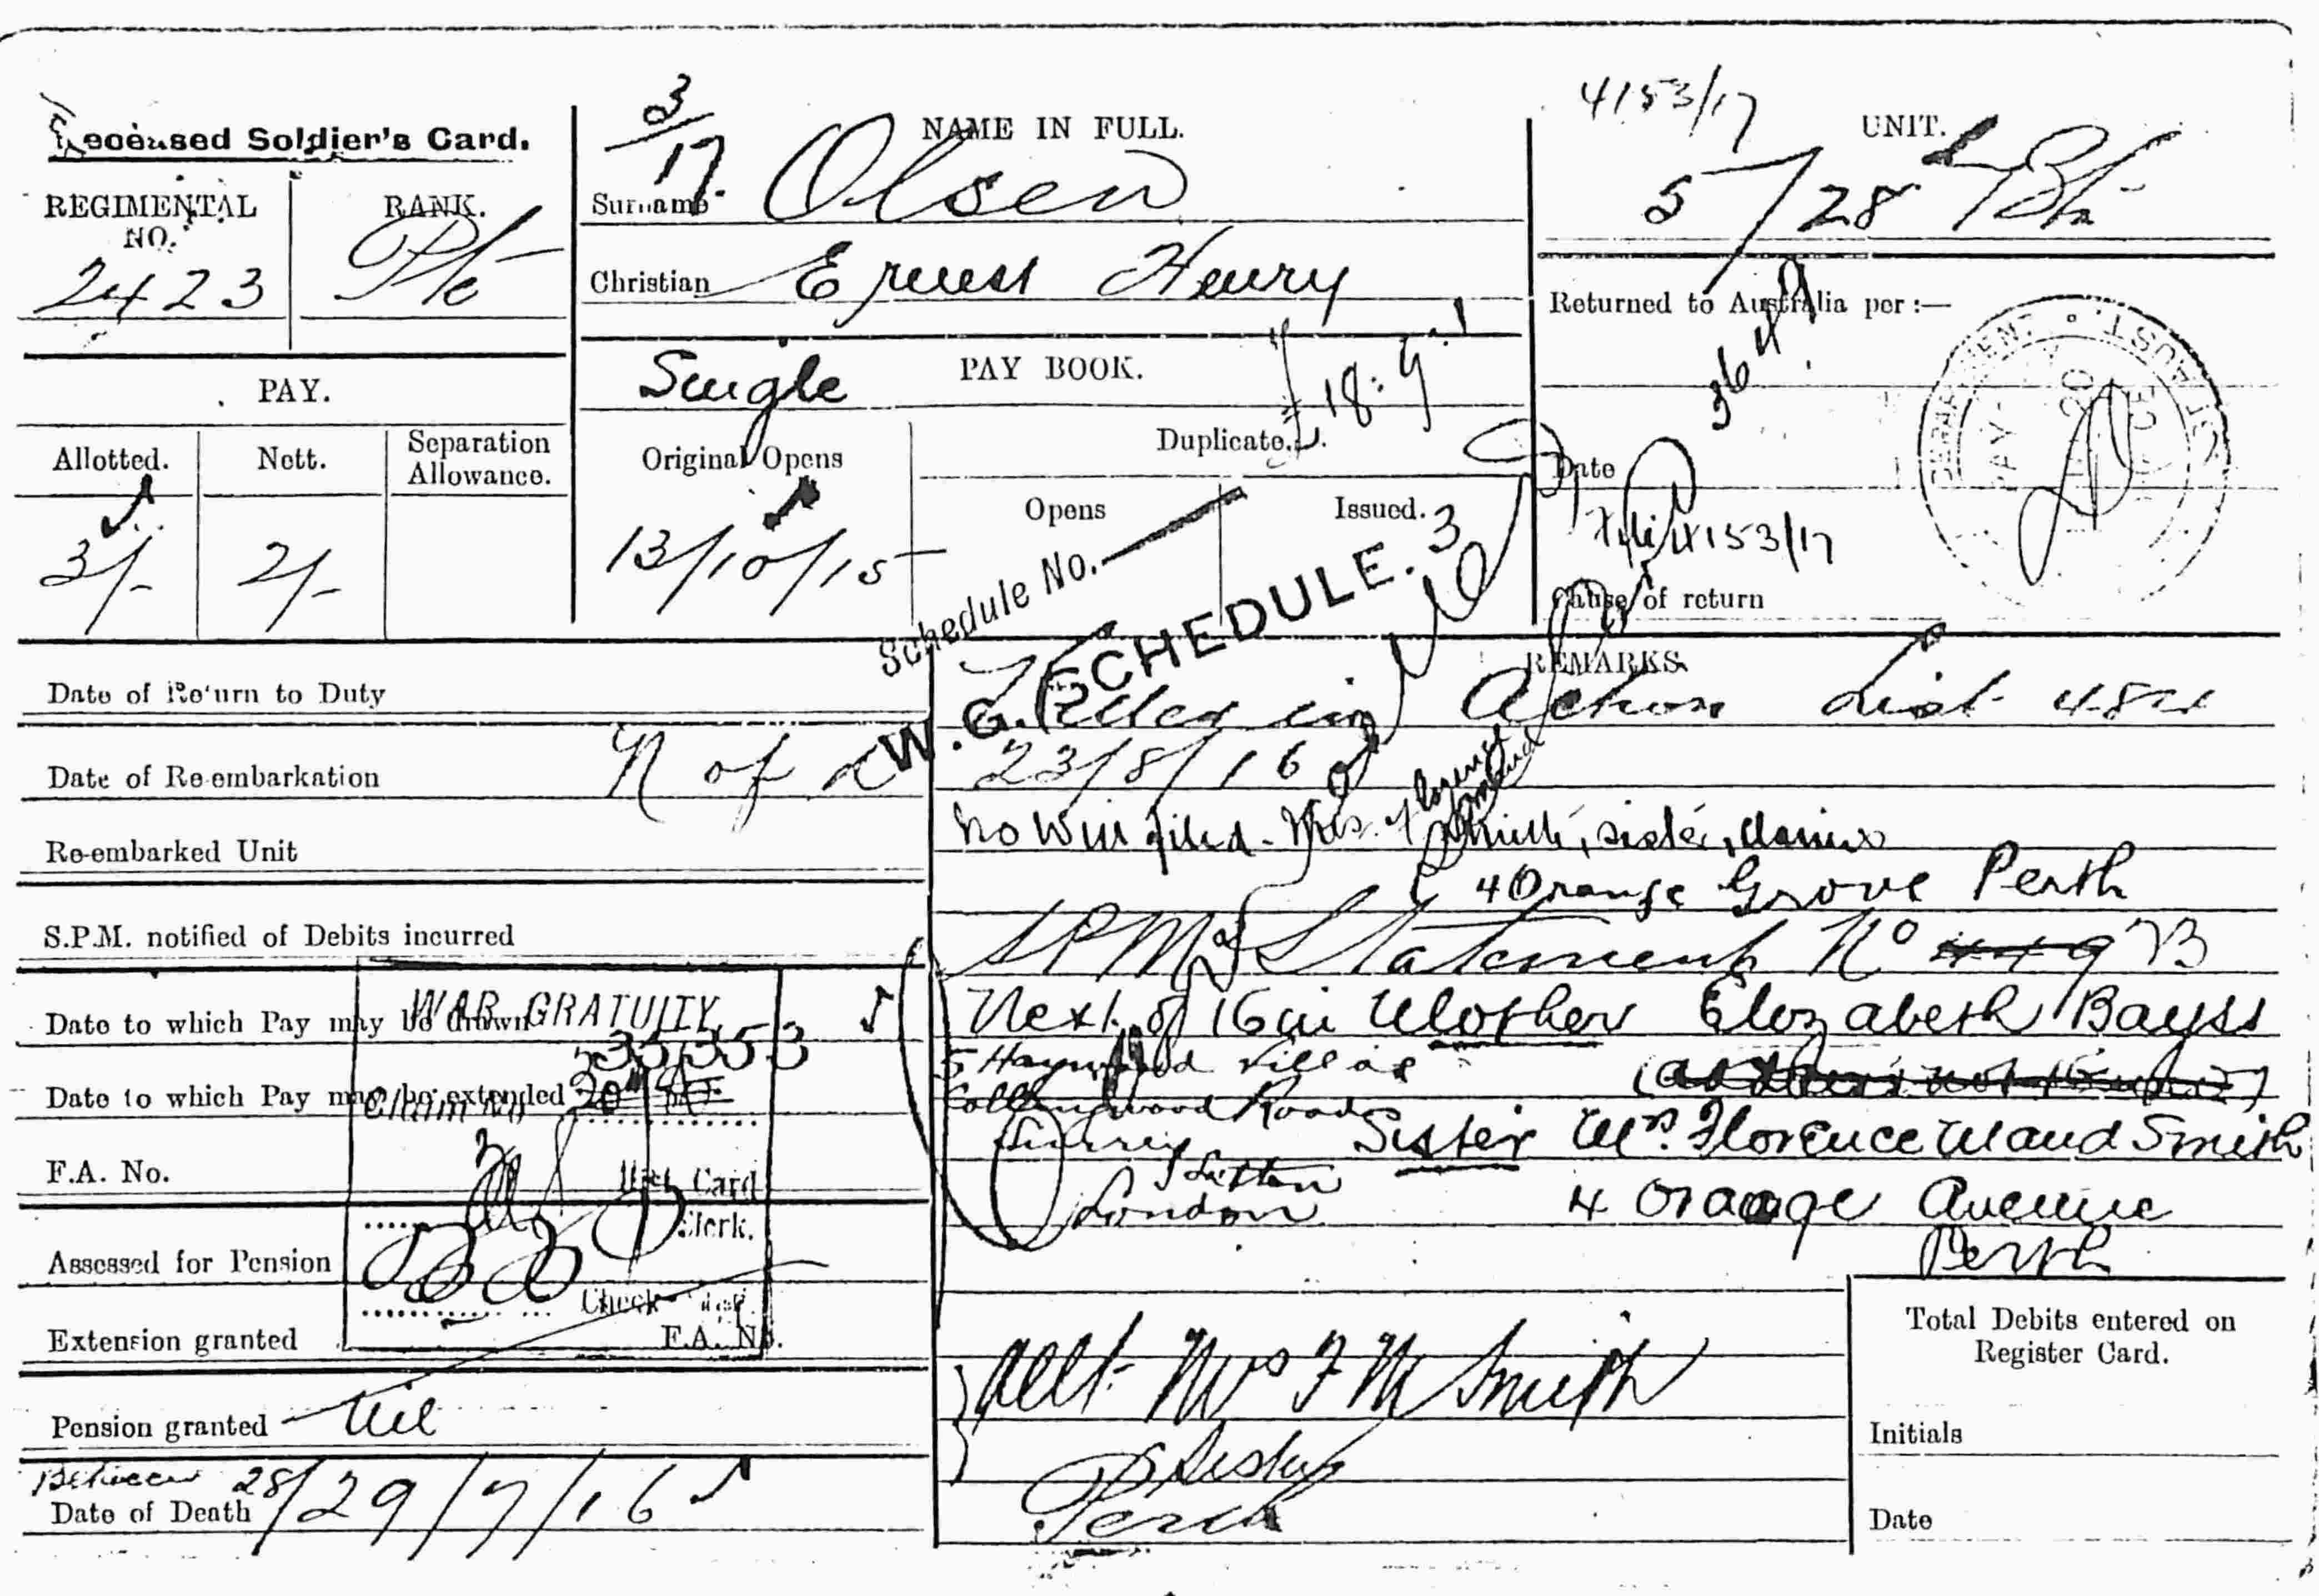 Deceased Soldier's Card.
REGIMENTAL NO.
2423
RANK.
Pte
3/17.
NAME IN FULL.
Surname Olsen
Christian Ernest Henry
4153/17
UNIT.
5/28 Btn
Returned to Australia per :—
PAY.
Allotted.
3/-
Nett.
2/-
Separation Allowance.
Single
PAY BOOK.
£ 18: 9
Original Opens
13/10/15
Duplicate.
Opens
Issued.
Schedule No.
W.G. SCHEDULE. 3
Date
4153/17
Cause of return
REMARKS.
Date of Return to Duty
Killed in Action List 484
Date of Re-embarkation
N of
23/8/16
Re-embarked Unit
No Will filed. Mrs. Florence Maud Smith, sister, claims
4 Orange Grove Perth
S.P.M. notified of Debits incurred
SPM Statement No 9 73
Date to which Pay may be drawn
WAR GRATUITY
35353
Next of Kin Mother Elozabeth Bayss
Date to which Pay may be extended
Claim No
5 Haywood Villas
Collingwood Road
Surrey
Sutton
London
Sister Mrs. Florence Maud Smith
4 Orange Avenue
Perth
F.A. No.
Card
Clerk.
Assessed for Pension
Check
Extension granted
F.A. No.
Allt. Mrs F M Smith
Sister
Perth
Total Debits entered on
Register Card.
Initials
Date
Pension granted Nil
Between 28/29/7/16
Date of Death